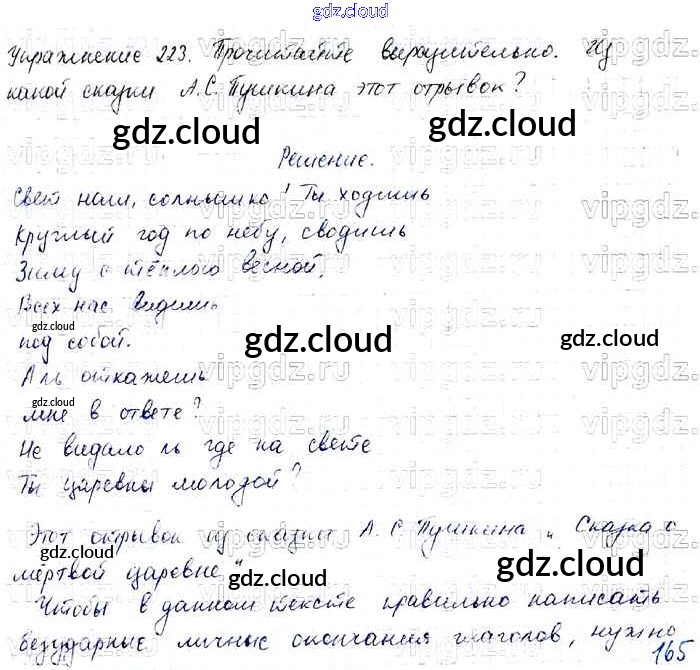 gdz.cloud
Упражнение 223. Прочитайте выразительно. Из
какой сказки А.С. Пушкина этот отрывок?
gdz.cloud
gdz.cloud
Решение.
Свет наш, солнышко! Ты ходишь
Круглый год по небу, сводишь
Зиму с тёплою весной,
Всех нас видишь
под собой.
gdz.cloud
gdz.cloud
gdz.cloud
Аль откажешь
gdz.cloud
мне в ответе?
Не видало ль где на свете
Ты царевны молодой?
Этот отрывок из сказки А. С. Пушкина „Сказка о
мёртвой царевне“
gdz.cloud
gdz.cloud
gdz.cloud
Чтобы в данном тексте правильно написать
безударные личные окончания глаголов, нужно
165